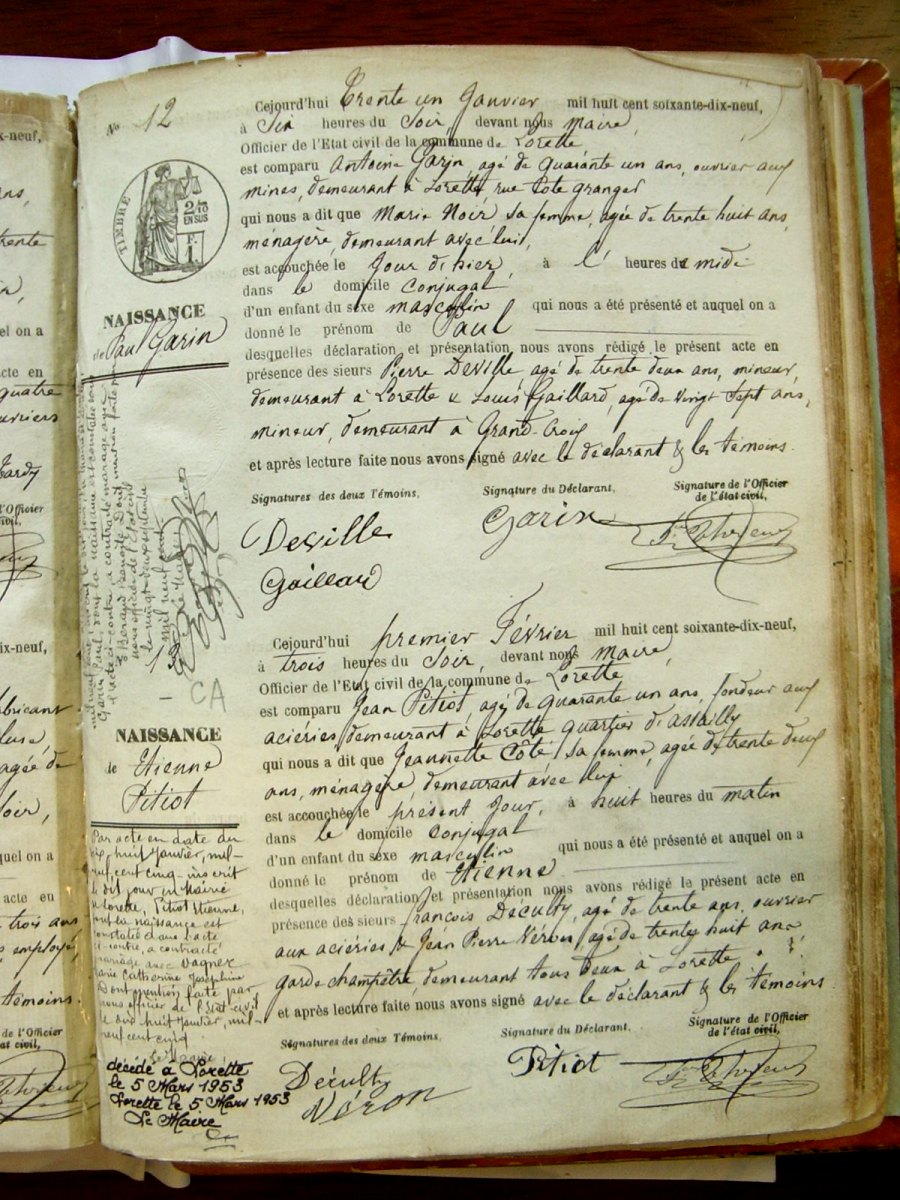 ix-neuf,
trente
el on a
acte en
quatre
ouvriers
Tardy
l'Officier
civil,
ix-neuf,
abricant
agée de
uel on a
acte en
trois ans
employé,
témoins.
de l'Officier
tat civil,
No 12
TIMBRE
2/10
EN SUS
F.
1.
NAISSANCE
de Paul Garin
Cejourd'hui Trente un Janvier mil huit cent soixante-dix-neuf,
à Six heures du Soir, devant nous Maire,
Officier de l'Etat civil de la commune de Lorette
est comparu Antoine Garin, agé de quarante un ans, ouvrier aux
mines, demeurant à Lorette, rue Côte Granger
qui nous a dit que Marie Noir, sa femme, agée de trente huit ans,
ménagère, demeurant avec lui,
est accouchée le Jour d'hier, à l' heures de midi
dans le domicile Conjugal
d'un enfant du sexe masculin qui nous a été présenté et auquel on a
donné le prénom de Paul
desquelles déclaration et présentation nous avons rédigé le présent acte en
présence des sieurs Pierre Deville agé de trente deux ans, mineur,
demeurant à Lorette & Louis Gaillard, agé de vingt sept ans,
mineur, demeurant à Grand-Croix
et après lecture faite nous avons signé avec le déclarant & les témoins.
Signatures des deux Témoins,
Signature du Déclarant,
Signature de l'Officier
de l'état civil,
Deville
Garin
Gaillard
13
- CA
NAISSANCE
de Etienne
Pitiot
Cejourd'hui premier Février mil huit cent soixante-dix-neuf,
à trois heures du Soir, devant nous Maire,
Officier de l'Etat civil de la commune de Lorette
est comparu Jean Pitiot, agé de quarante un ans, fondeur aux
aciéries, demeurant à Lorette quartier d'Assailly
qui nous a dit que Jeannette Côte, sa femme, agée de trente deux
ans, ménagère, demeurant avec lui
est accouchée le présent Jour, à huit heures du matin
dans le domicile Conjugal
d'un enfant du sexe masculin qui nous a été présenté et auquel on a
donné le prénom de Etienne
desquelles déclaration et présentation nous avons rédigé le présent acte en
présence des sieurs François Déculty, agé de trente ans, ouvrier
aux aciéries & Jean Pierre Véron, agé de trente huit ans
garde champêtre, demeurant tous deux à Lorette
et après lecture faite nous avons signé avec le déclarant & les témoins
Signatures des deux Témoins,
Signature du Déclarant,
Signature de l'Officier
de l'état civil,
Déculty
Pitiot
Véron
Par acte en date du
dix huit Janvier, mil-
neuf cent cinq, inscrit
le dit jour en Mairie
de Lorette, Pitiot Etienne,
dont la naissance est
constatée dans l'acte
ci-contre, a contracté
mariage avec Vagner
Marie Catherine Joséphine
Dont mention faite par
nous officier de l'Etat-civil
le dix huit Janvier, mil-
neuf cent cinq
Le Maire
décédé à Lorette
le 5 Mars 1953
Lorette le 5 Mars 1953
Le Maire